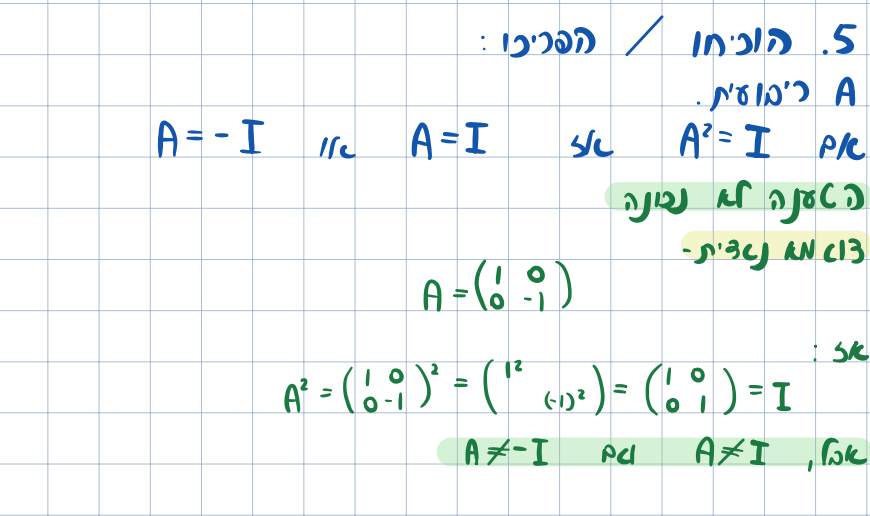 5. הוכיחו / הפריכו :
A ריבועית .
אם A² = I אז A = I או A = - I
הטענה לא נכונה
דוגמא נגדית -
A = ( 1 0 ; 0 -1 )
אז :
A² = ( 1 0 ; 0 -1 )² = ( 1² ; (-1)² ) = ( 1 0 ; 0 1 ) = I
אבל, A ≠ I וגם A ≠ - I